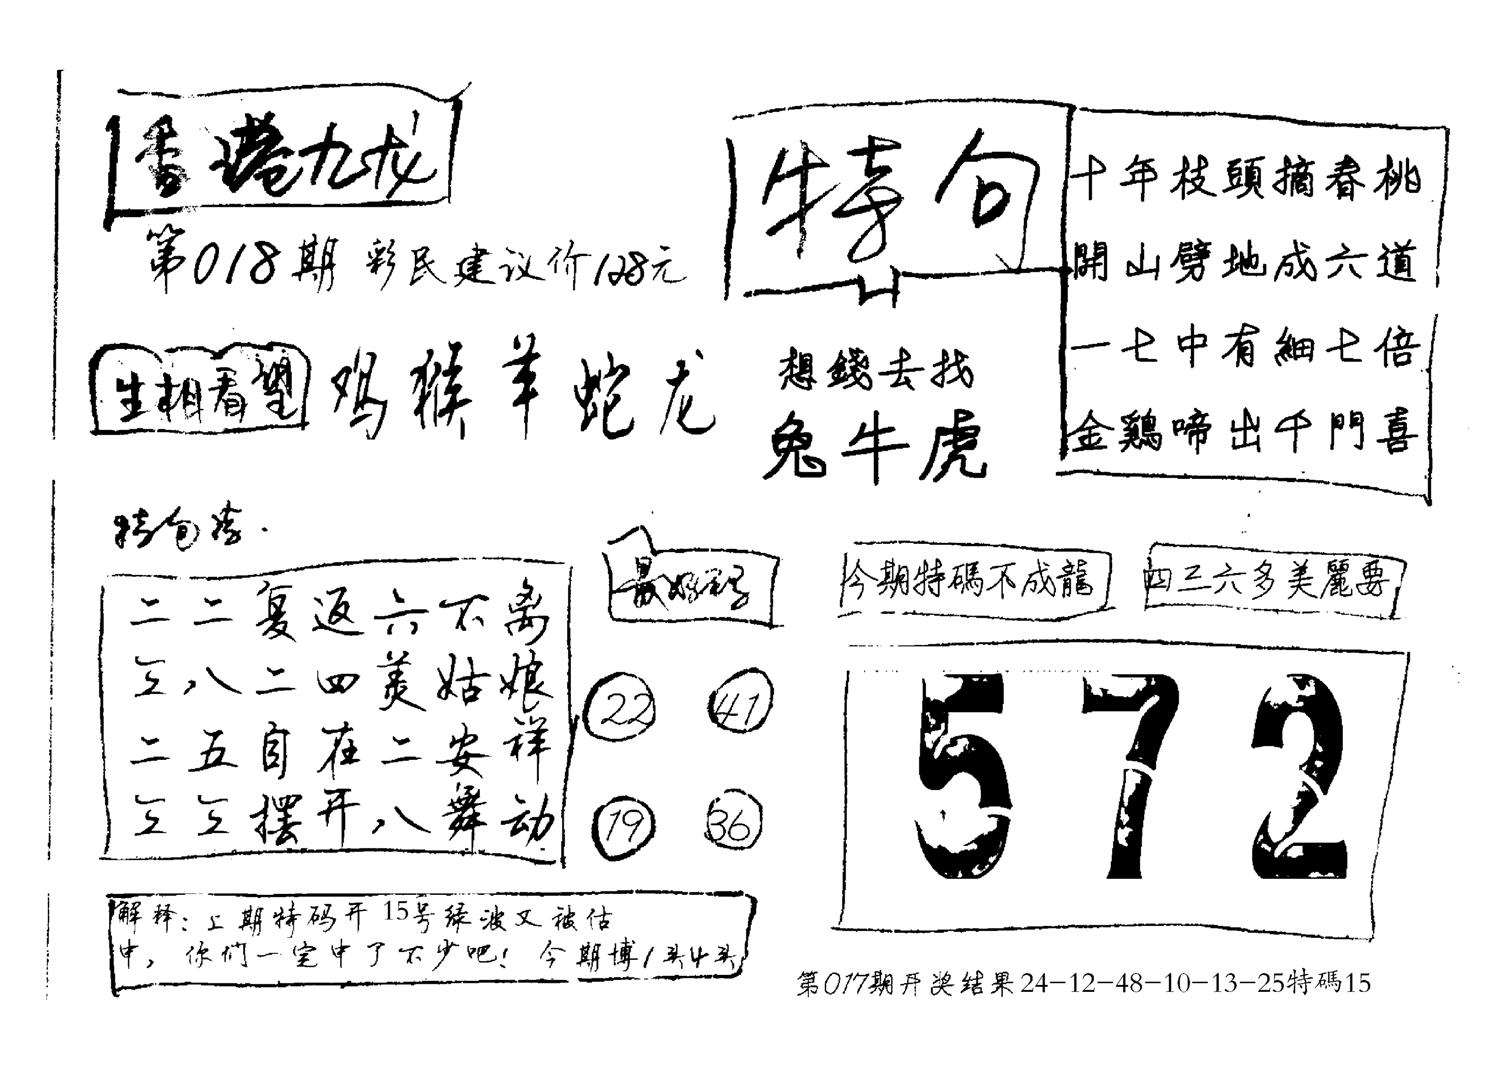 香港九龙
第018期 彩民建议价128元
特句
十年枝頭摘春桃
開山劈地成六道
一七中有細七倍
金鷄啼出千門喜
生相看望 鸡猴羊蛇龙
想錢去找
兔牛虎
二二复返六不离
三八二四美姑娘
二五自在二安祥
三三摆开八舞动
最好码
22 41
19 36
今期特碼不成龍
四三六多美麗要
572
解释：上期特码开15号绿波又被估
中，你们一定中了不少吧！今期博1头4头
第017期开奖结果24-12-48-10-13-25特碼15